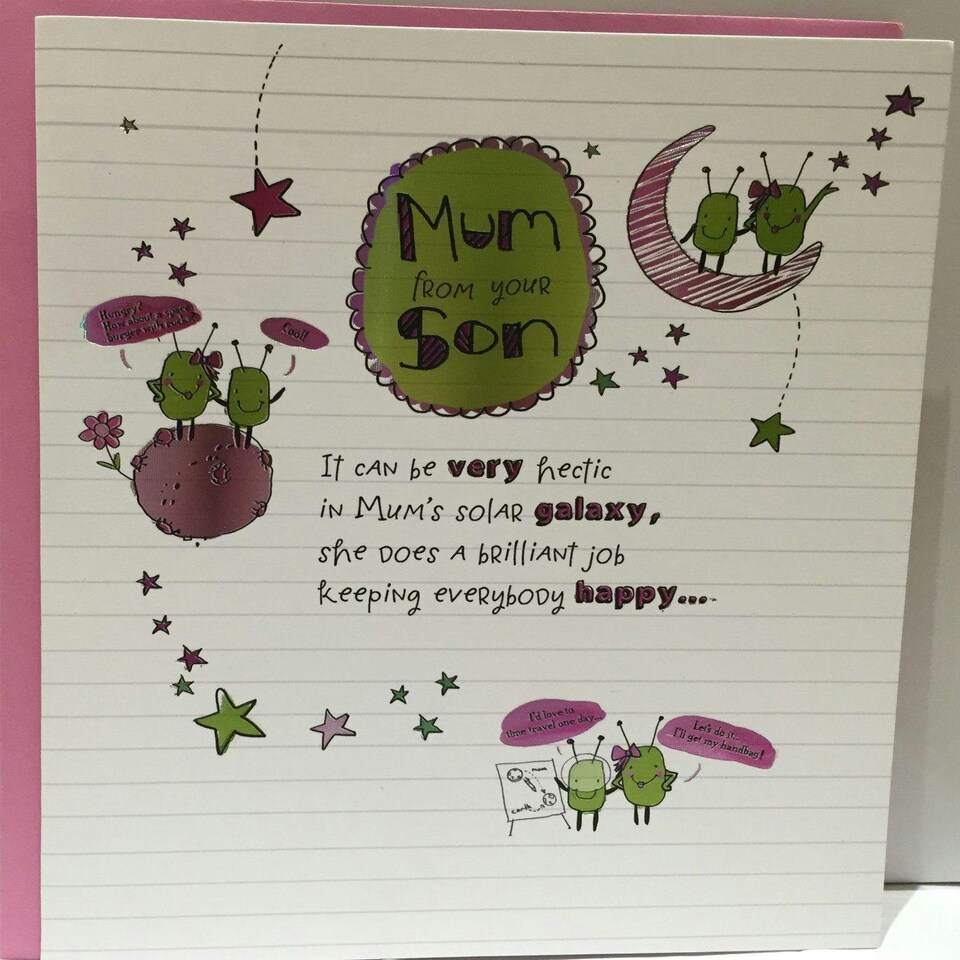 Mum
from your
Son
Hungry?
How about a space
burger with rocket?
Cool!
It can be very hectic
in Mum's solar galaxy,
she does a brilliant job
keeping everybody happy...
I'd love to
time travel one day...
Let's do it...
I'll get my handbag!
moon
earth